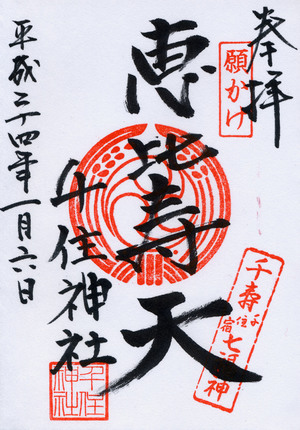 奉拝
願かけ
恵比寿天
千寿
千住宿
七福神
千住神社
千住神社
平成二十四年一月六日